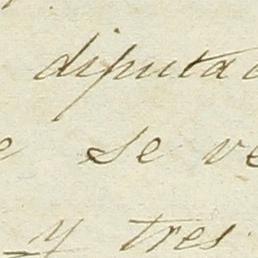 diputac
e se ve
y tres